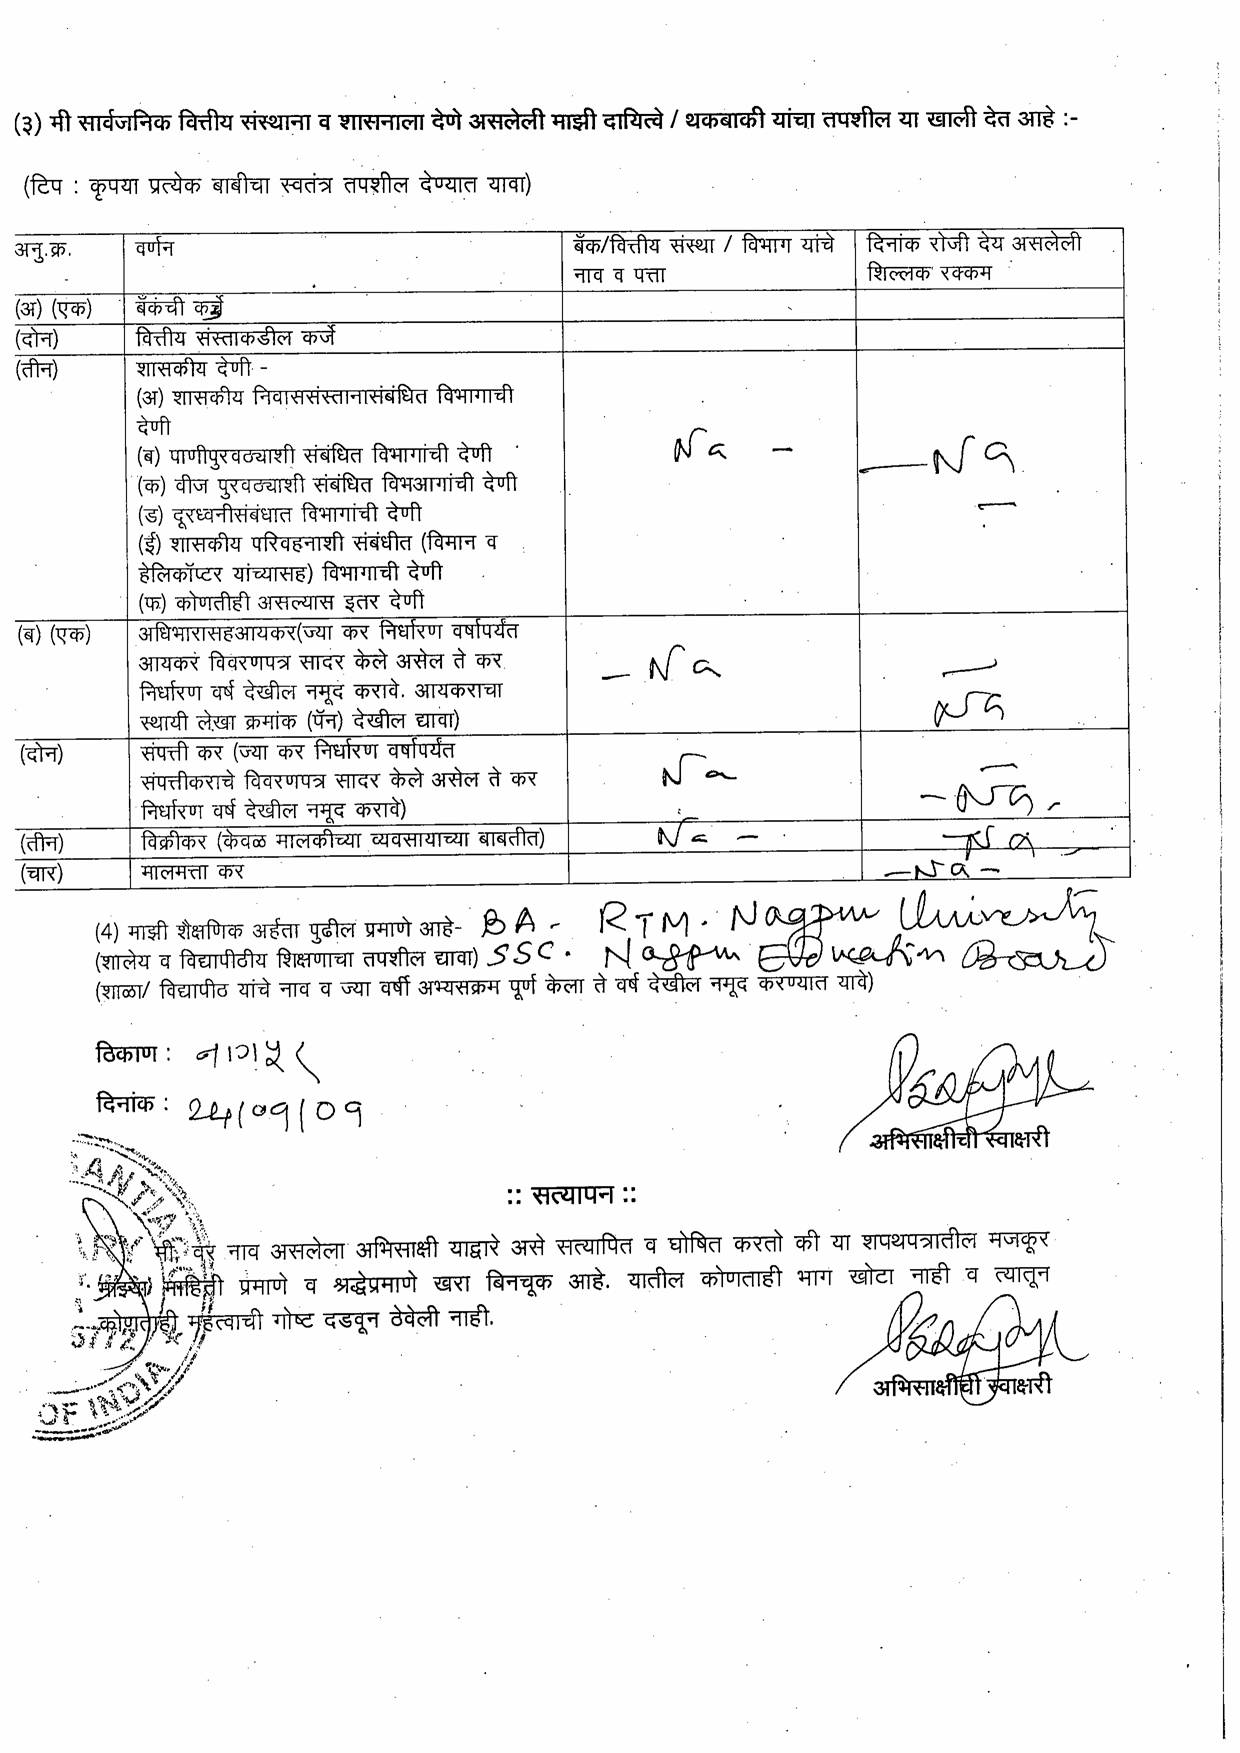 (३) मी सार्वजनिक वित्तीय संस्थाना व शासनाला देणे असलेली माझी दायित्वे / थकबाकी यांचा तपशील या खाली देत आहे :-
(टिप : कृपया प्रत्येक बाबीचा स्वतंत्र तपशील देण्यात यावा)
अनु.क्र. वर्णन बँक/वित्तीय संस्था / विभाग यांचे दिनांक रोजी देय असलेली
नाव व पत्ता शिल्लक रक्कम
(अ) (एक) बँकंची कर्जे
(दोन) वित्तीय संस्ताकडील कर्जे
(तीन) शासकीय देणी -
(अ) शासकीय निवाससंस्तानासंबंधित विभागाची
देणी
(ब) पाणीपुरवठ्याशी संबंधित विभागांची देणी Na - —NA
(क) वीज पुरवठ्याशी संबंधित विभआगांची देणी
(ड) दूरध्वनीसंबंधात विभागांची देणी —
(ई) शासकीय परिवहनाशी संबंधीत (विमान व
हेलिकॉप्टर यांच्यासह) विभागाची देणी
(फ) कोणतीही असल्यास इतर देणी
(ब) (एक) अधिभारासहआयकर(ज्या कर निर्धारण वर्षापर्यंत
आयकर विवरणपत्र सादर केले असेल ते कर - Na —
निर्धारण वर्ष देखील नमूद करावे. आयकराचा
स्थायी लेखा क्रमांक (पॅन) देखील द्यावा) Na
(दोन) संपत्ती कर (ज्या कर निर्धारण वर्षापर्यंत
संपत्तीकराचे विवरणपत्र सादर केले असेल ते कर Na —
निर्धारण वर्ष देखील नमूद करावे) - Na -
(तीन) विक्रीकर (केवळ मालकीच्या व्यवसायाच्या बाबतीत) Na - -Na -
(चार) मालमत्ता कर -Na-
(4) माझी शैक्षणिक अर्हता पुढील प्रमाणे आहे- BA - RTM. Nagpur University
(शालेय व विद्यापीठीय शिक्षणाचा तपशील द्यावा) SSC. Nagpur Education Board
(शाळा/ विद्यापीठ यांचे नाव व ज्या वर्षी अभ्यसक्रम पूर्ण केला ते वर्ष देखील नमूद करण्यात यावे)
ठिकाण : नागपुर
दिनांक : 24/09/09
अभिसाक्षीची स्वाक्षरी
:: सत्यापन ::
मी, वर नाव असलेला अभिसाक्षी याद्वारे असे सत्यापित व घोषित करतो की या शपथपत्रातील मजकूर
माझ्या माहिती प्रमाणे व श्रद्धेप्रमाणे खरा बिनचूक आहे. यातील कोणताही भाग खोटा नाही व त्यातून
कोणताही महत्वाची गोष्ट दडवून ठेवेली नाही.
अभिसाक्षीची स्वाक्षरी
OF INDIA